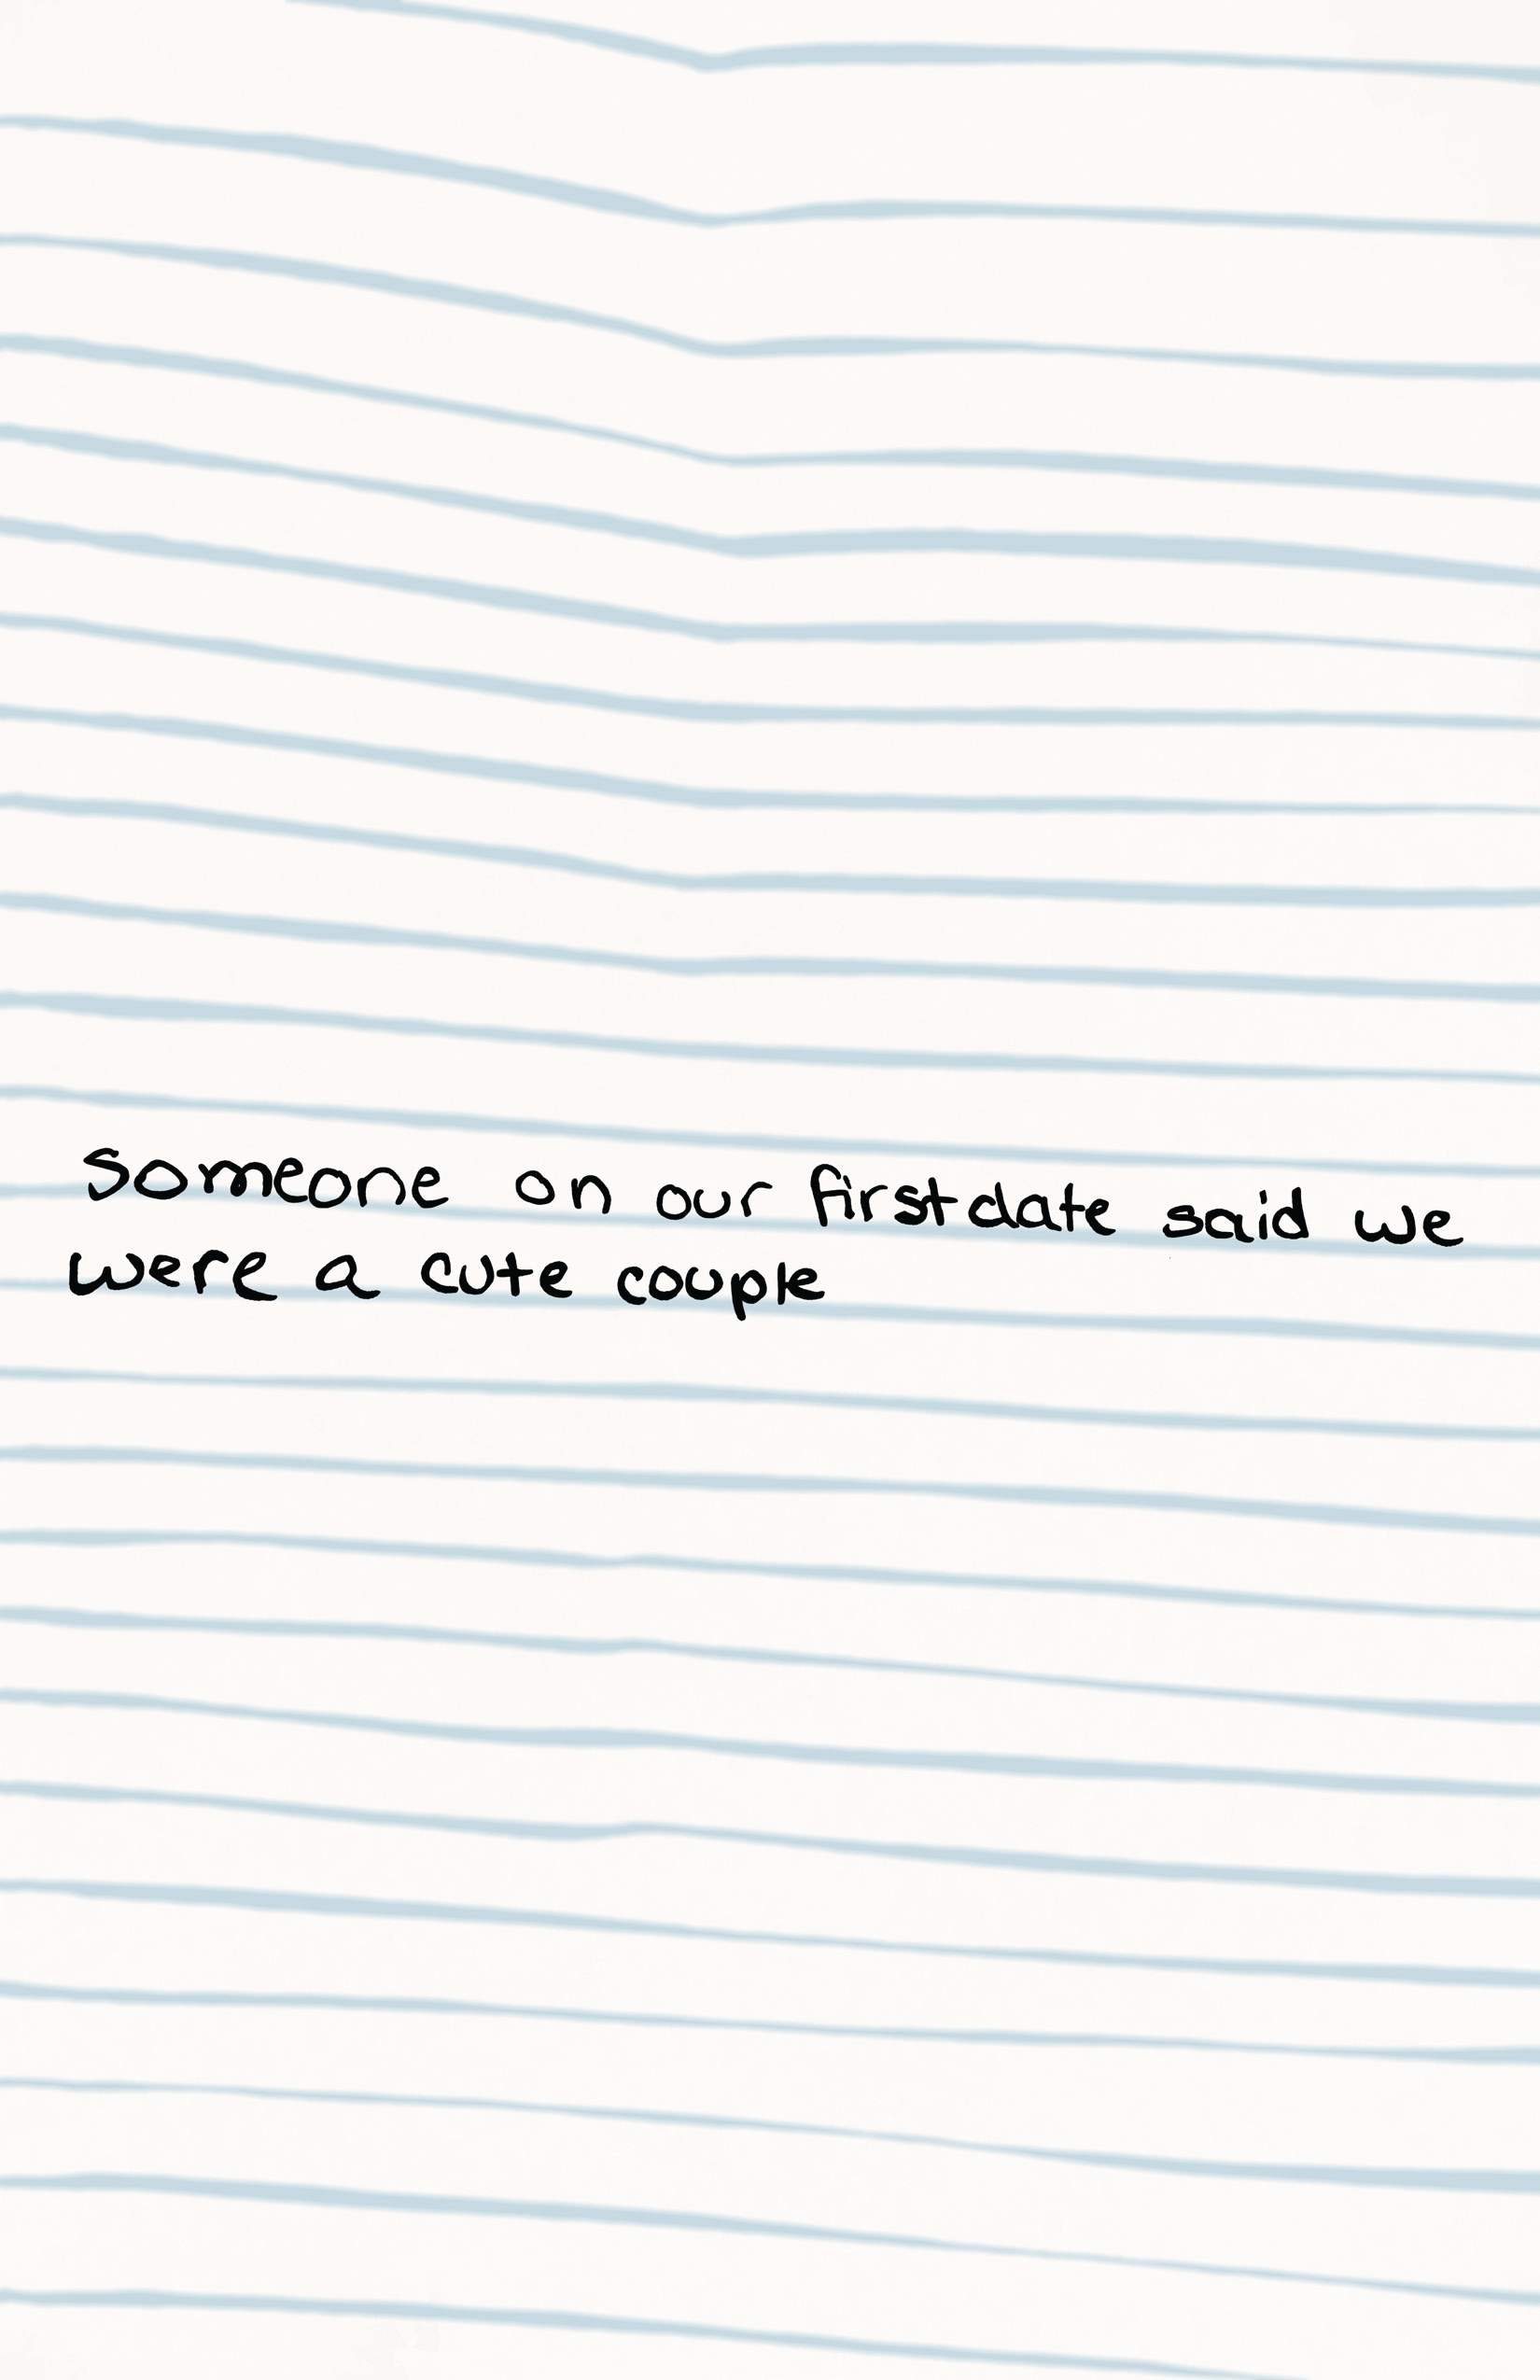 Someone on our first date said we
were a cute couple